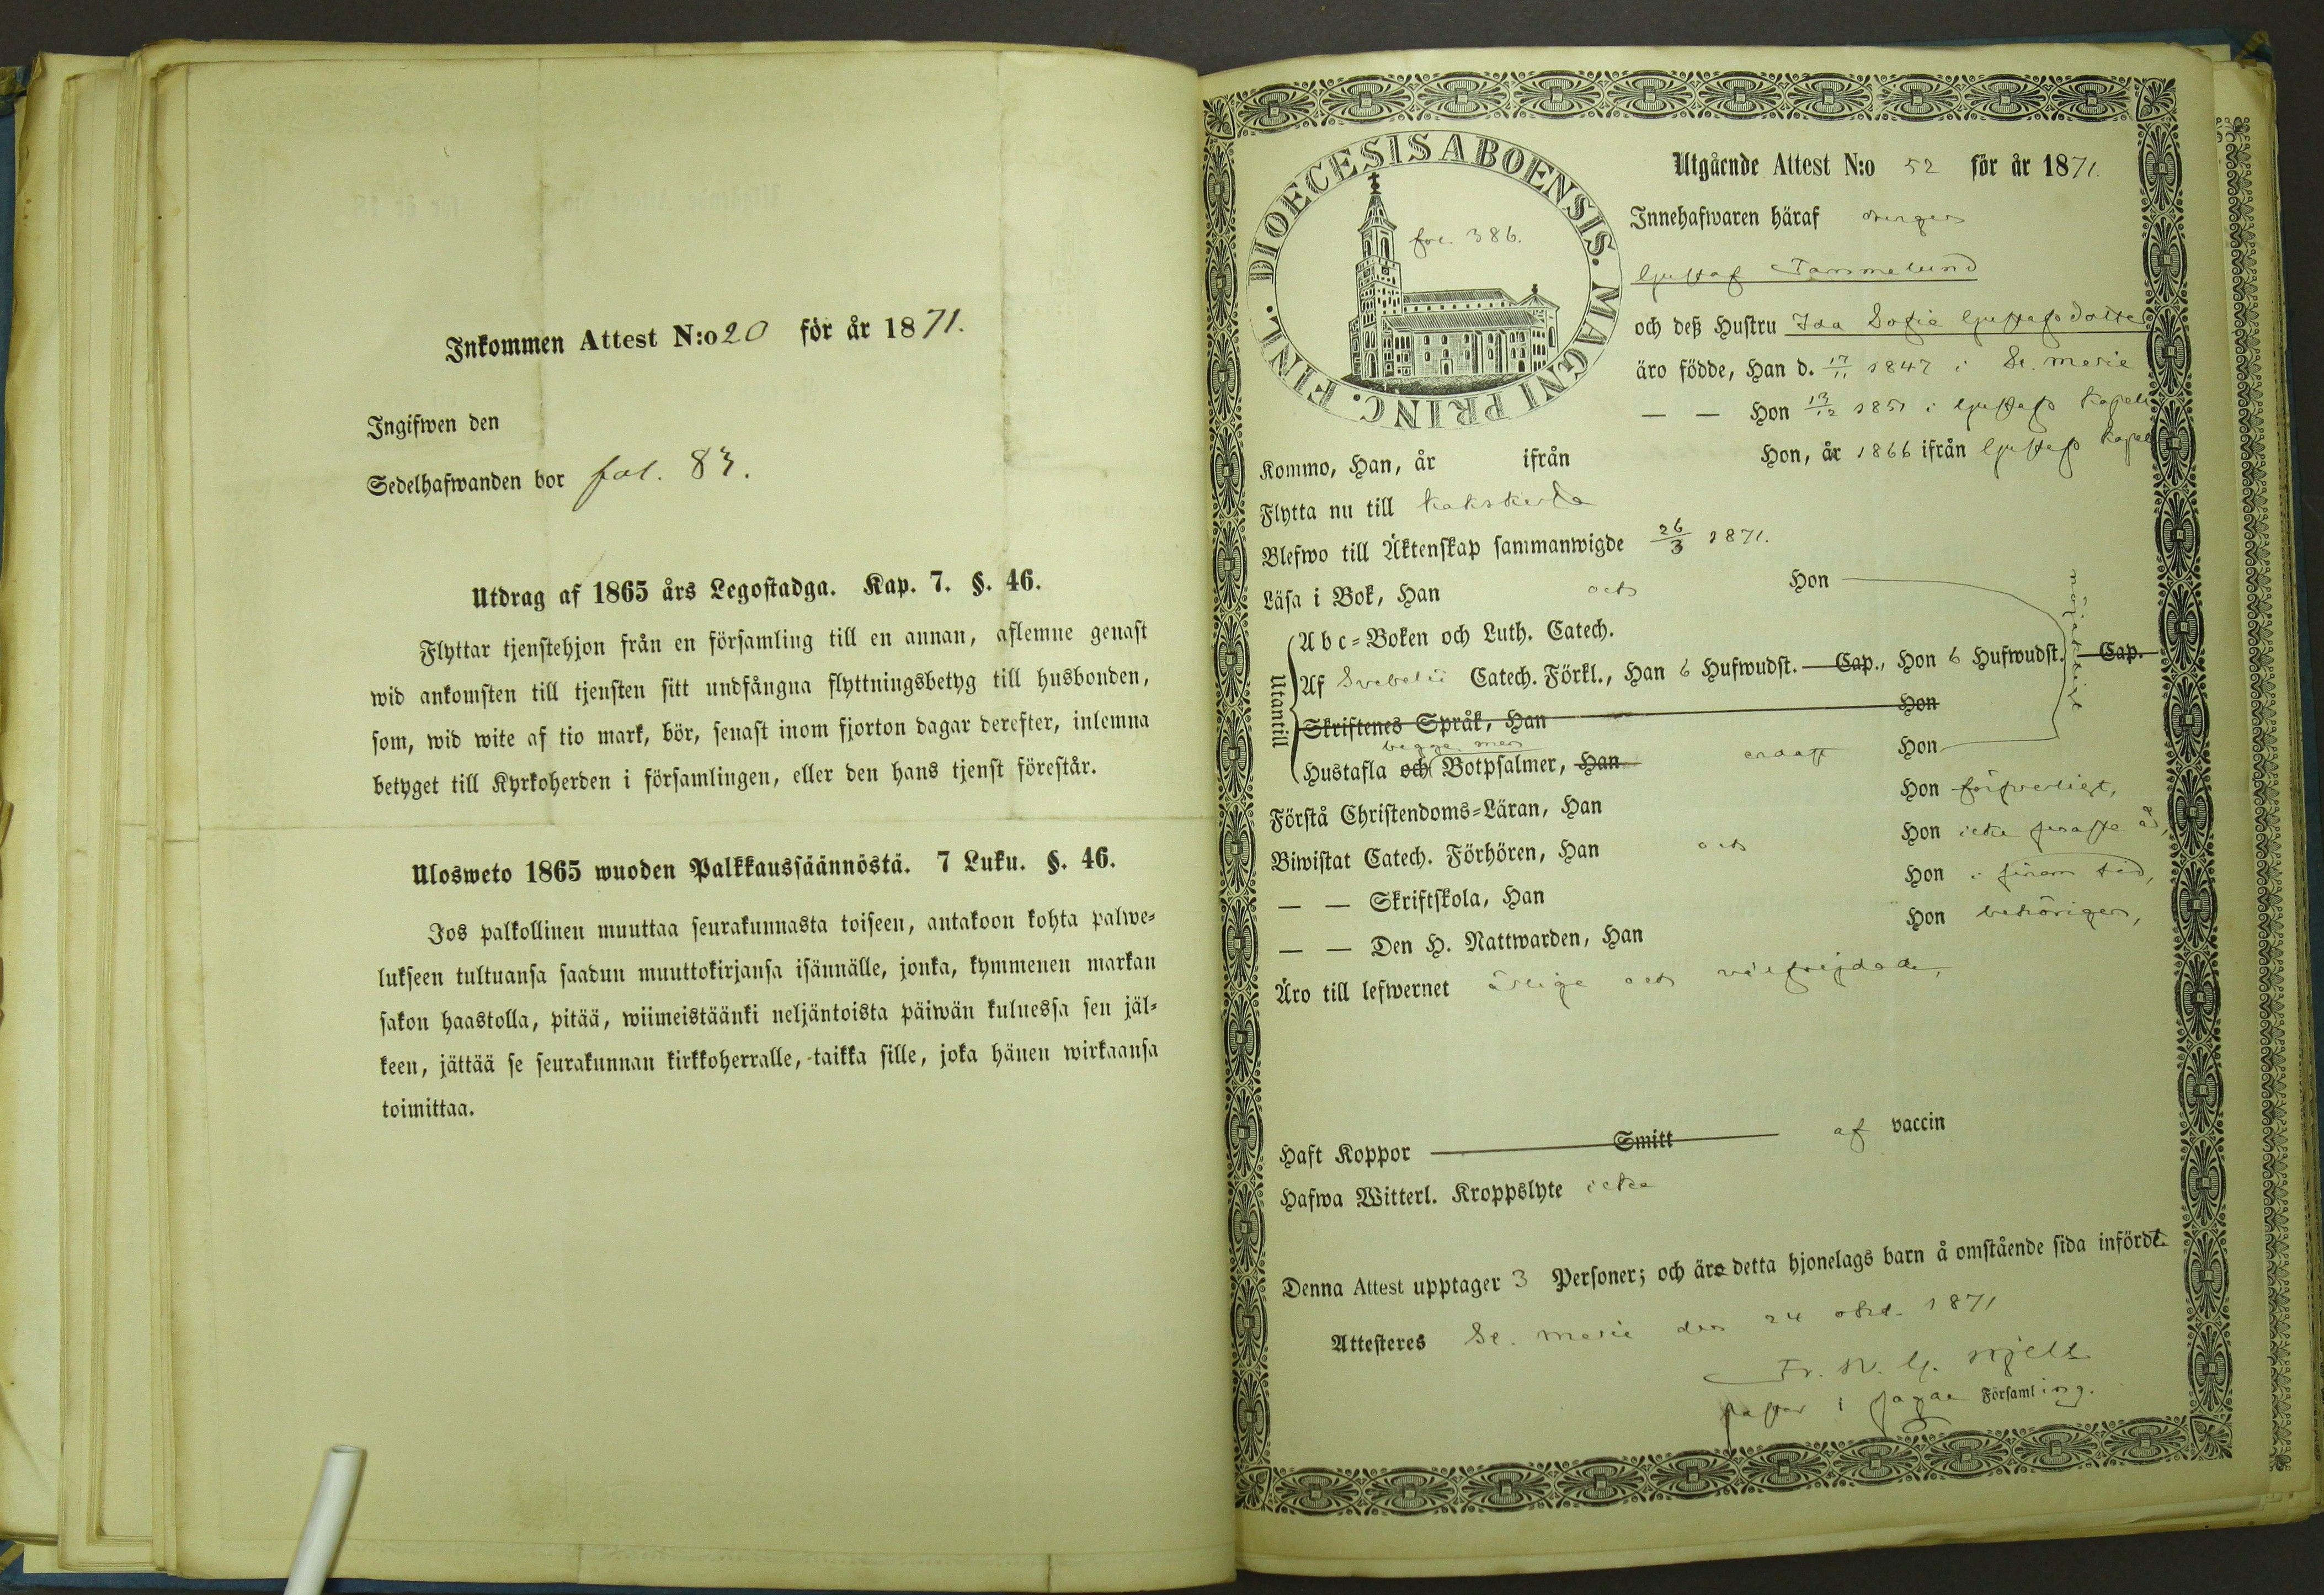 Inkommen Attest N:o 20 för år 1871.
Ingifwen den
Sedelhafwanden bor fol. 83.
Utdrag af 1865 års Legostadga. Kap. 7. §. 46.
Flyttar tjenstehjon från en församling till en annan, aflemne genast
wid ankomsten till tjensten sitt undfångna flyttningsbetyg till husbonden,
som, wid wite af tio mark, bör, senast inom fjorton dagar derefter, inlemna
betyget till Kyrkoherden i församlingen, eller den hans tjenst förestår.
Ulosweto 1865 wuoden Palkkaussäännöstä. 7 Luku. §. 46.
Jos palkollinen muuttaa seurakunnasta toiseen, antakoon kohta palwe-
lukseen tultuansa saadun muuttokirjansa isännälle, jonka, kymmenen markan
sakon haastolla, pitää, wiimeistäänki neljäntoista päiwän kuluessa sen jäl-
keen, jättää se seurakunnan kirkkoherralle, taikka sille, joka hänen wirkaansa
toimittaa.
DIOECESIS ABOENSIS. MAGNI PRINC. FINL.
fol. 386.
Utgårnde Attest N:o 52 för år 1871.
Innehafwaren häraf drengen
Gustaf Tammelund
och deß Hustru Ida Sofia Gustafsdotter
äro födde, Han d. 17/11 1847 i St. Marie
— — Hon 13/12 1851 i Gustafs Kapell
Kommo, Han, år ifrån Hon, år 1866 ifrån Gustafs Kapell
Flytta nu till Kakskerta
Blefwo till Äktenskap sammanwigde 26/3 1871.
Läsa i Bok, Han och Hon
nöjaktigt
Utantill
Abc-Boken och Luth. Catech.
Af Svebelii Catech. Förkl., Han 6 Hufwudst. Cap., Hon 6 Hufwudst. Cap.
Skriftenes Språk, Han Hon
begge men
Hustafla och Botpsalmer, Han endast Hon
Förstå Christendoms-Läran, Han Hon försvarligt,
Biwistat Catech. Förhören, Han och Hon icke senaste år,
— — Skriftskola, Han Hon i sinom tid,
— — Den H. Nattwarden, Han Hon behörigen,
Äro till lefwernet ärlige och välfrejdade,
Haft Koppor Smitt af vaccin
Hafwa Witterl. Kroppslyte icke
Denna Attest upptager 3 Personer; och äro detta hjonelags barn å omstående sida infördt.
Attesteres St. Marie den 24 okt. 1871
Fr. W. G. Hjelt
pastor i Församling.